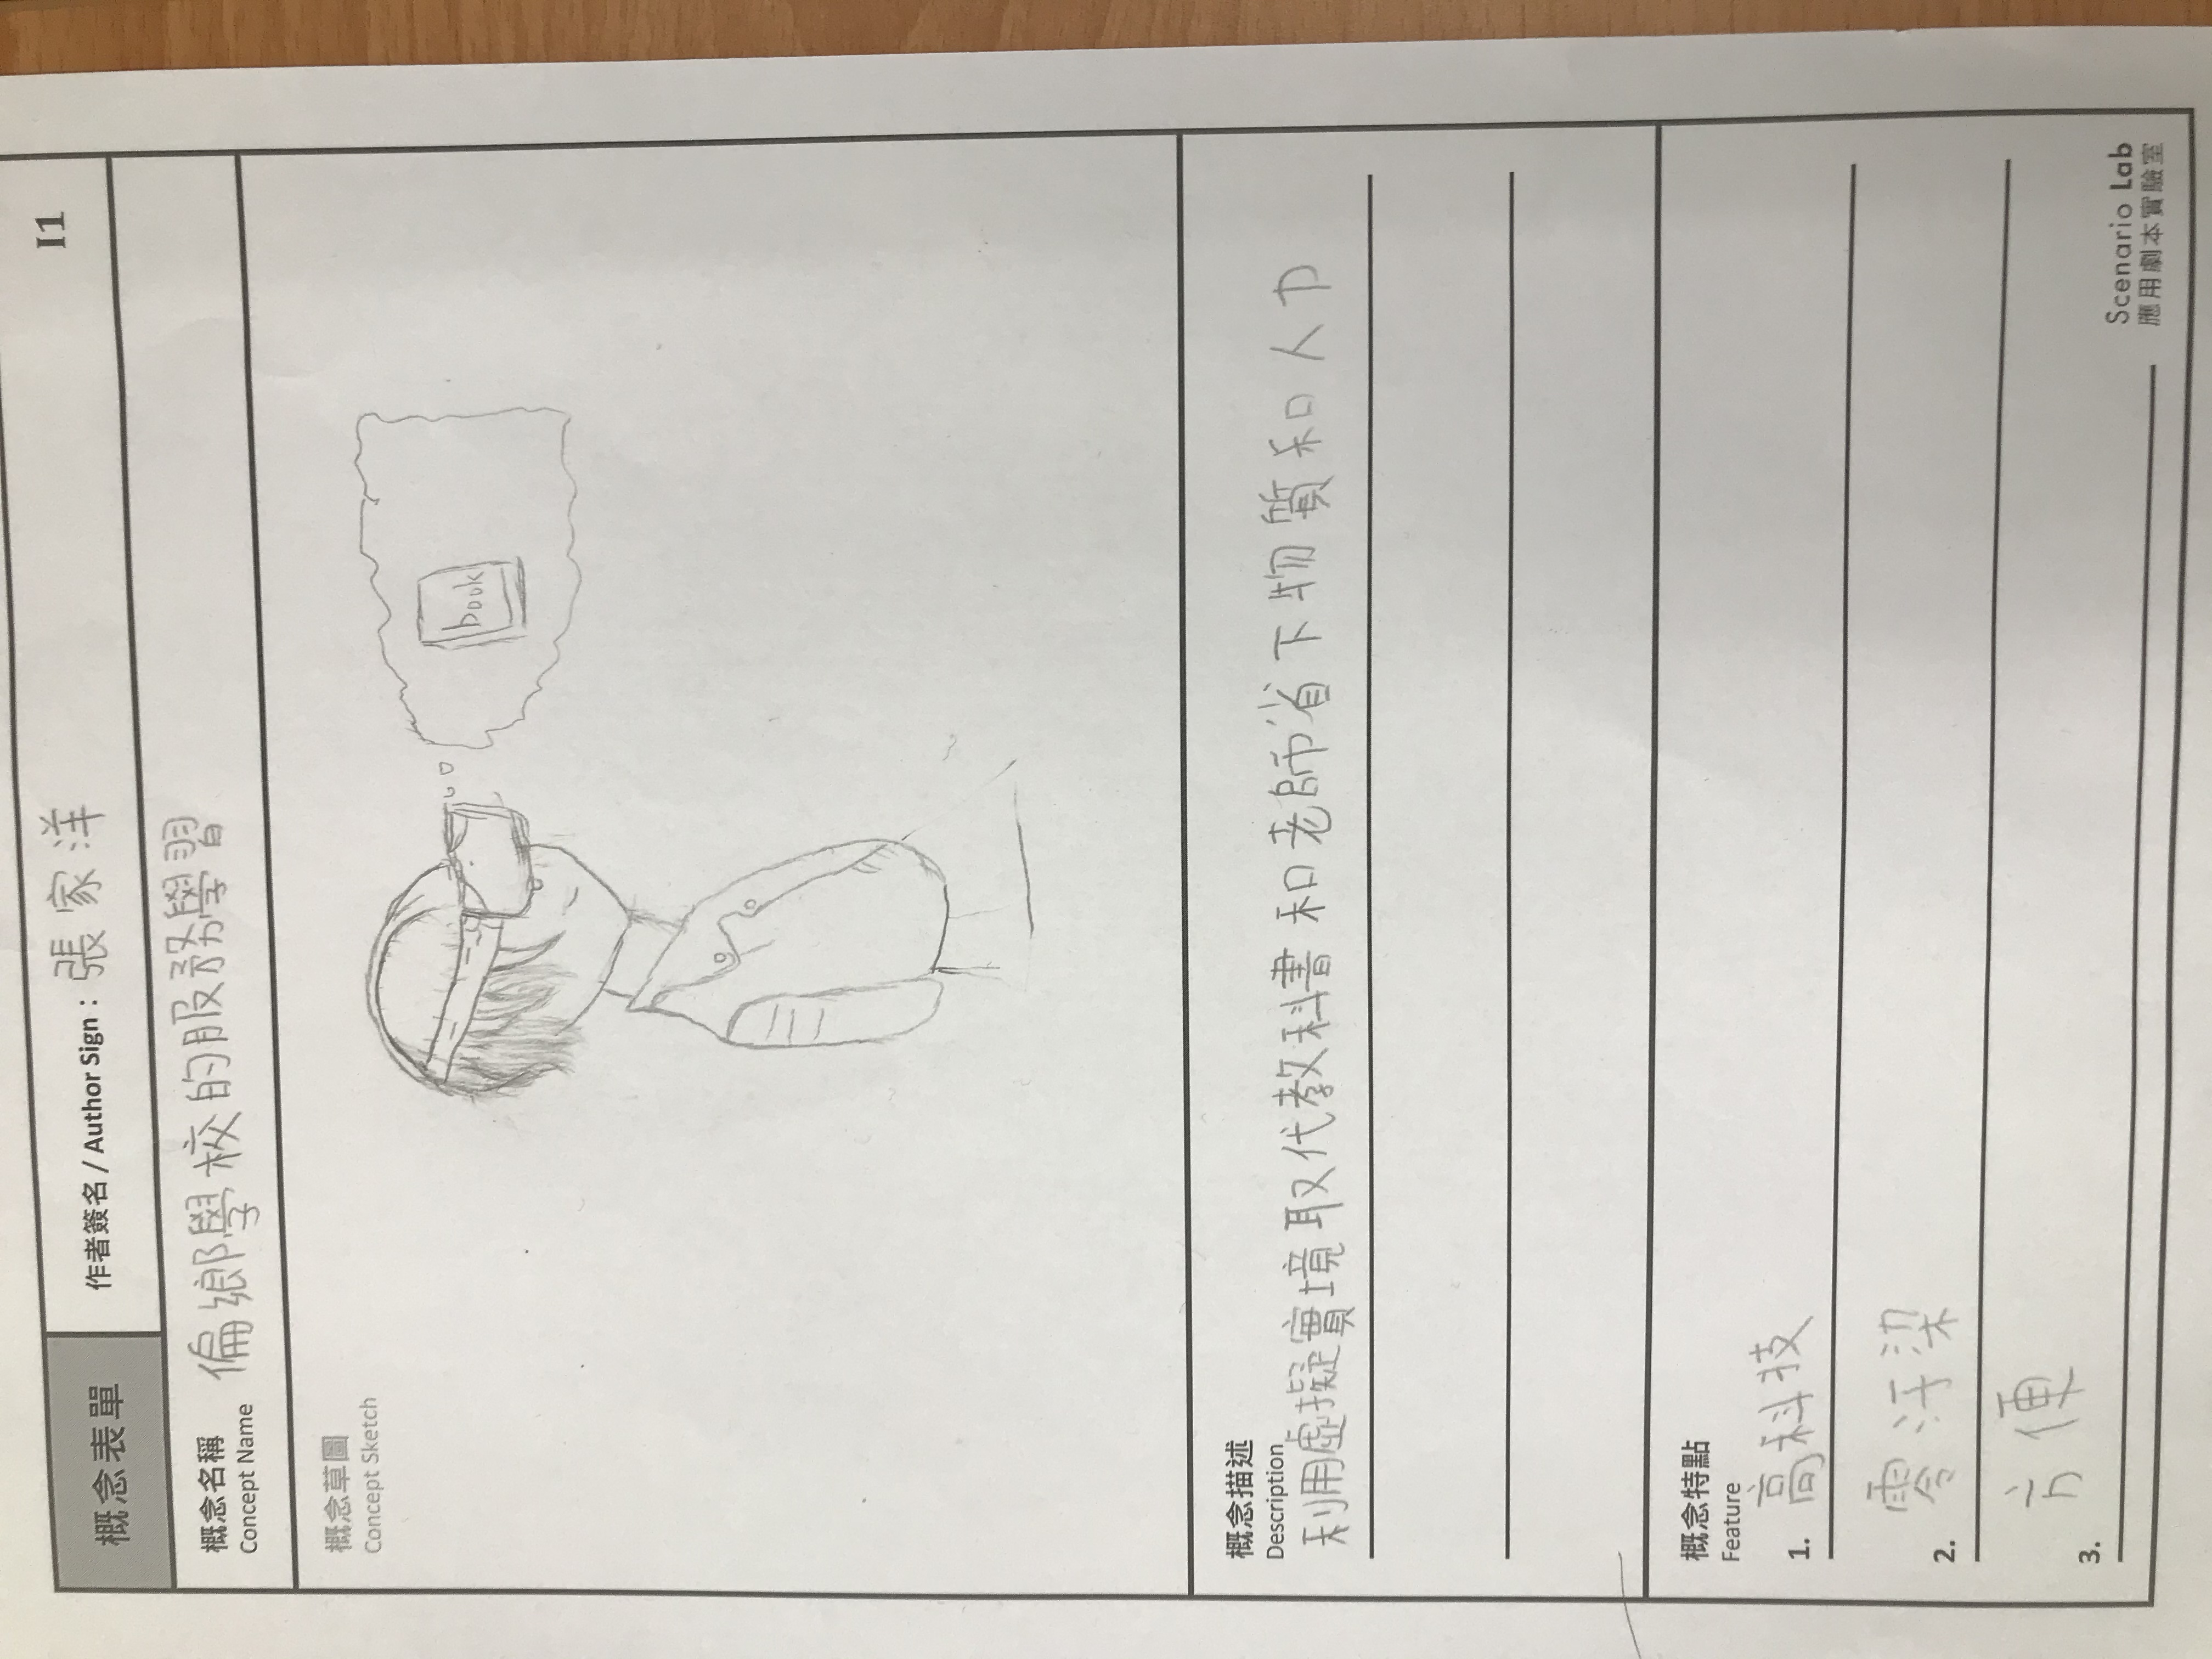 概念表單
作者簽名 / Author Sign：張家洋
I1
概念名稱 偏鄉學校的服務學習
Concept Name
概念草圖
Concept Sketch
book
概念描述
Description
利用虛擬實境取代教科書和老師省下物質和人力
概念特點
Feature
1. 高科技
2. 零汙染
3. 方便
Scenario Lab
應用劇本實驗室